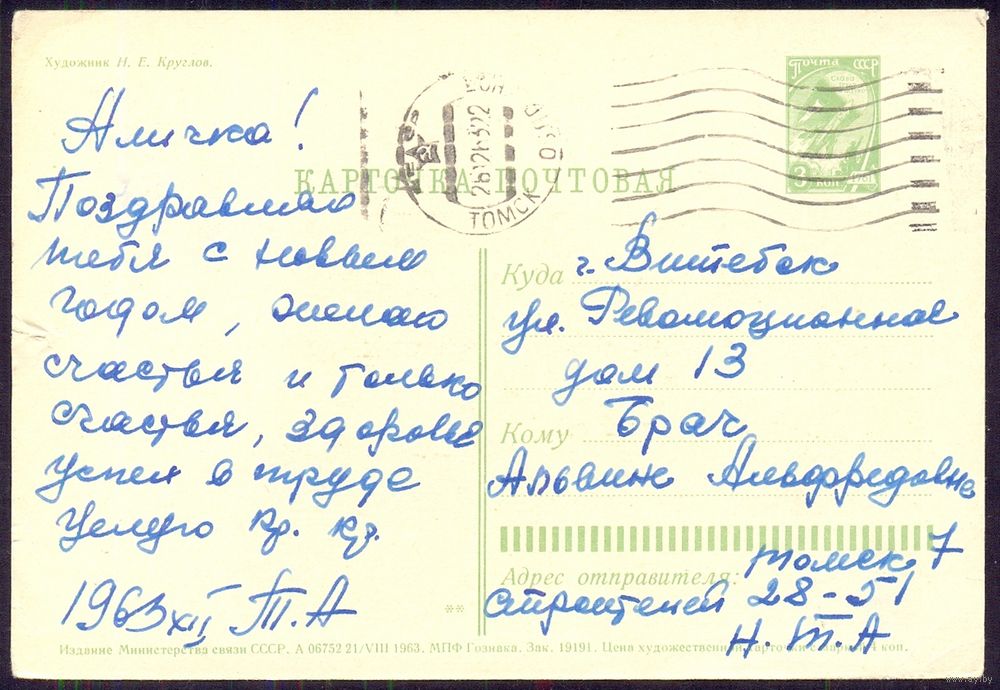 Художник Н. Е. Круглов.
Аличка!
Поздравляю
тебя с новым
годом, желаю
счастья и только
счастья, здоровье
успех в труде
Целую кр. кр.
1963 XII Т.А
КАРТОЧКА ПОЧТОВАЯ
ТОМСК
Почта СССР
3 коп
Куда г. Витебск
ул. Революционная
дом 13
Кому Брач
Альвине Альфредовне
Адрес отправителя: Томск 7
Строителей 28-51
Н. Т. А
**
Издание Министерства связи СССР. А 06752 21/VIII 1963. МПФ Гознака. Зак. 19191. Цена художественной карточки с маркой 4 коп.
www.ay.by